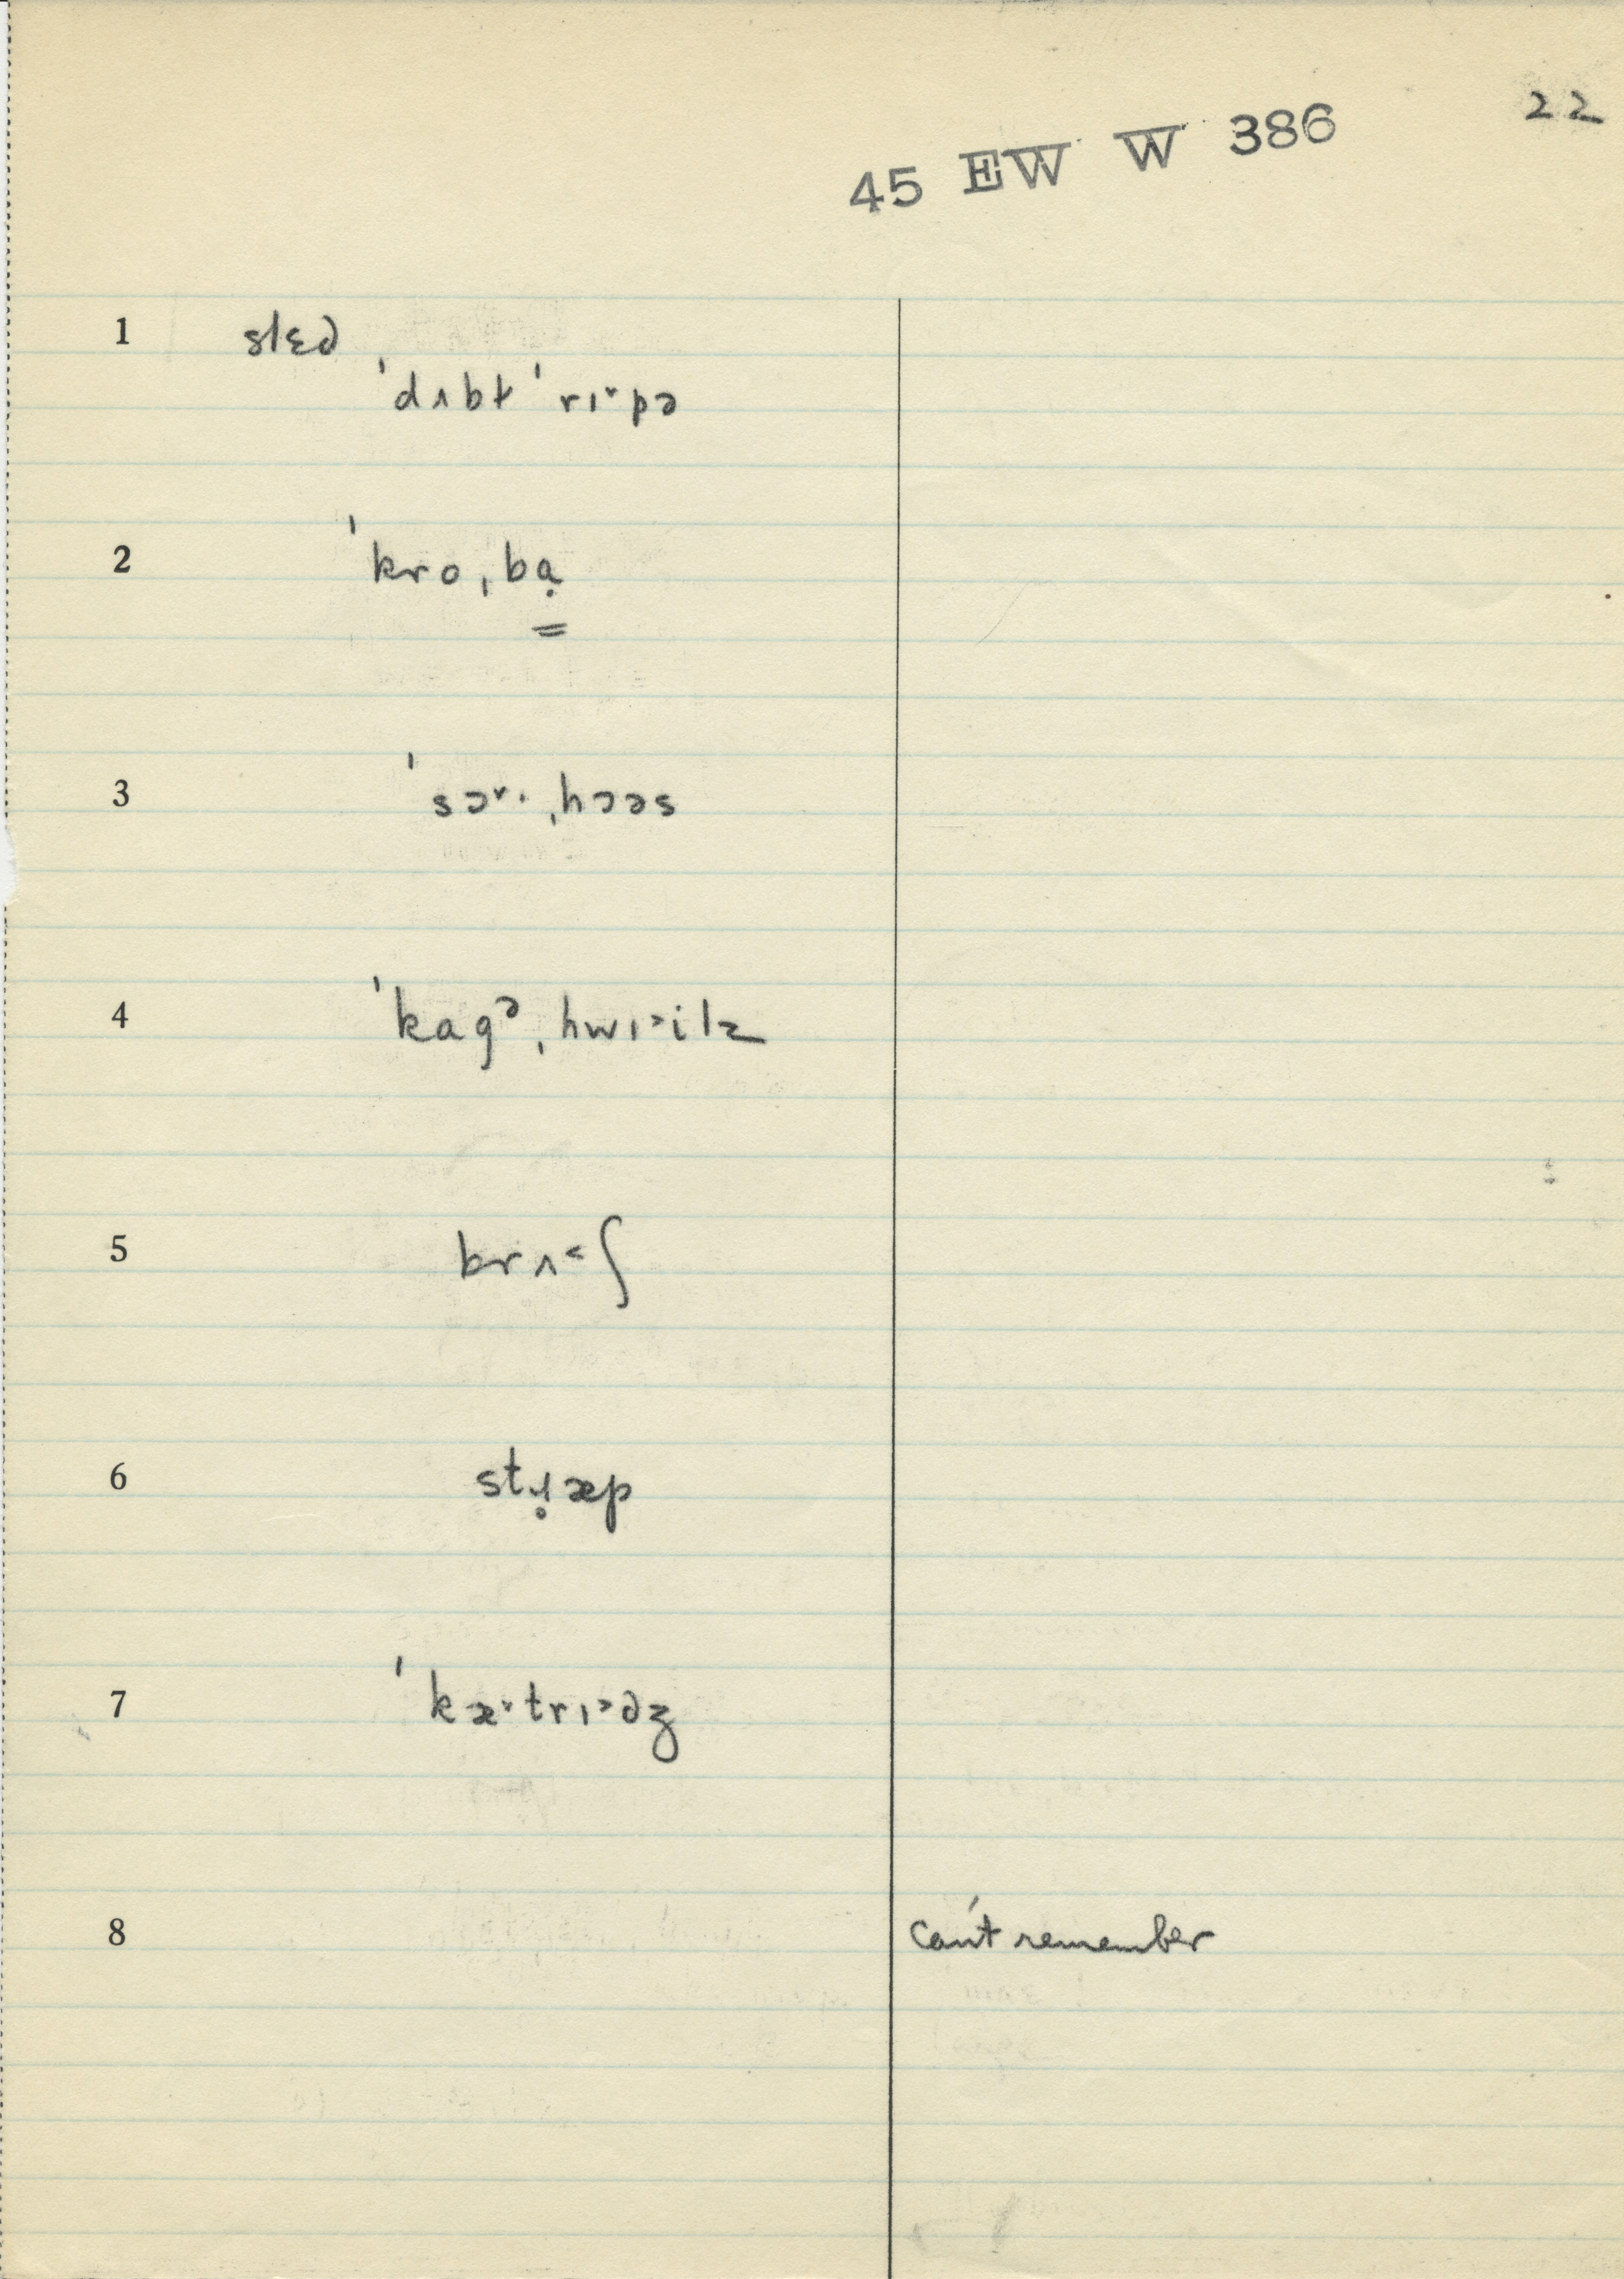 22
45 EW W 386
1 slɛd
ˈdʌbɫ ˈrɪ˅pə
2 ˈkroˌbạ
3 ˈsɔ˅· ˌhɔəs
4 ˈkagᵊˌhwɪ˃ilz
5 brʌ˂ʃ
6 stɹ̥æp
7 ˈkæ˅·trɪ˃dʒ
8 can't remember